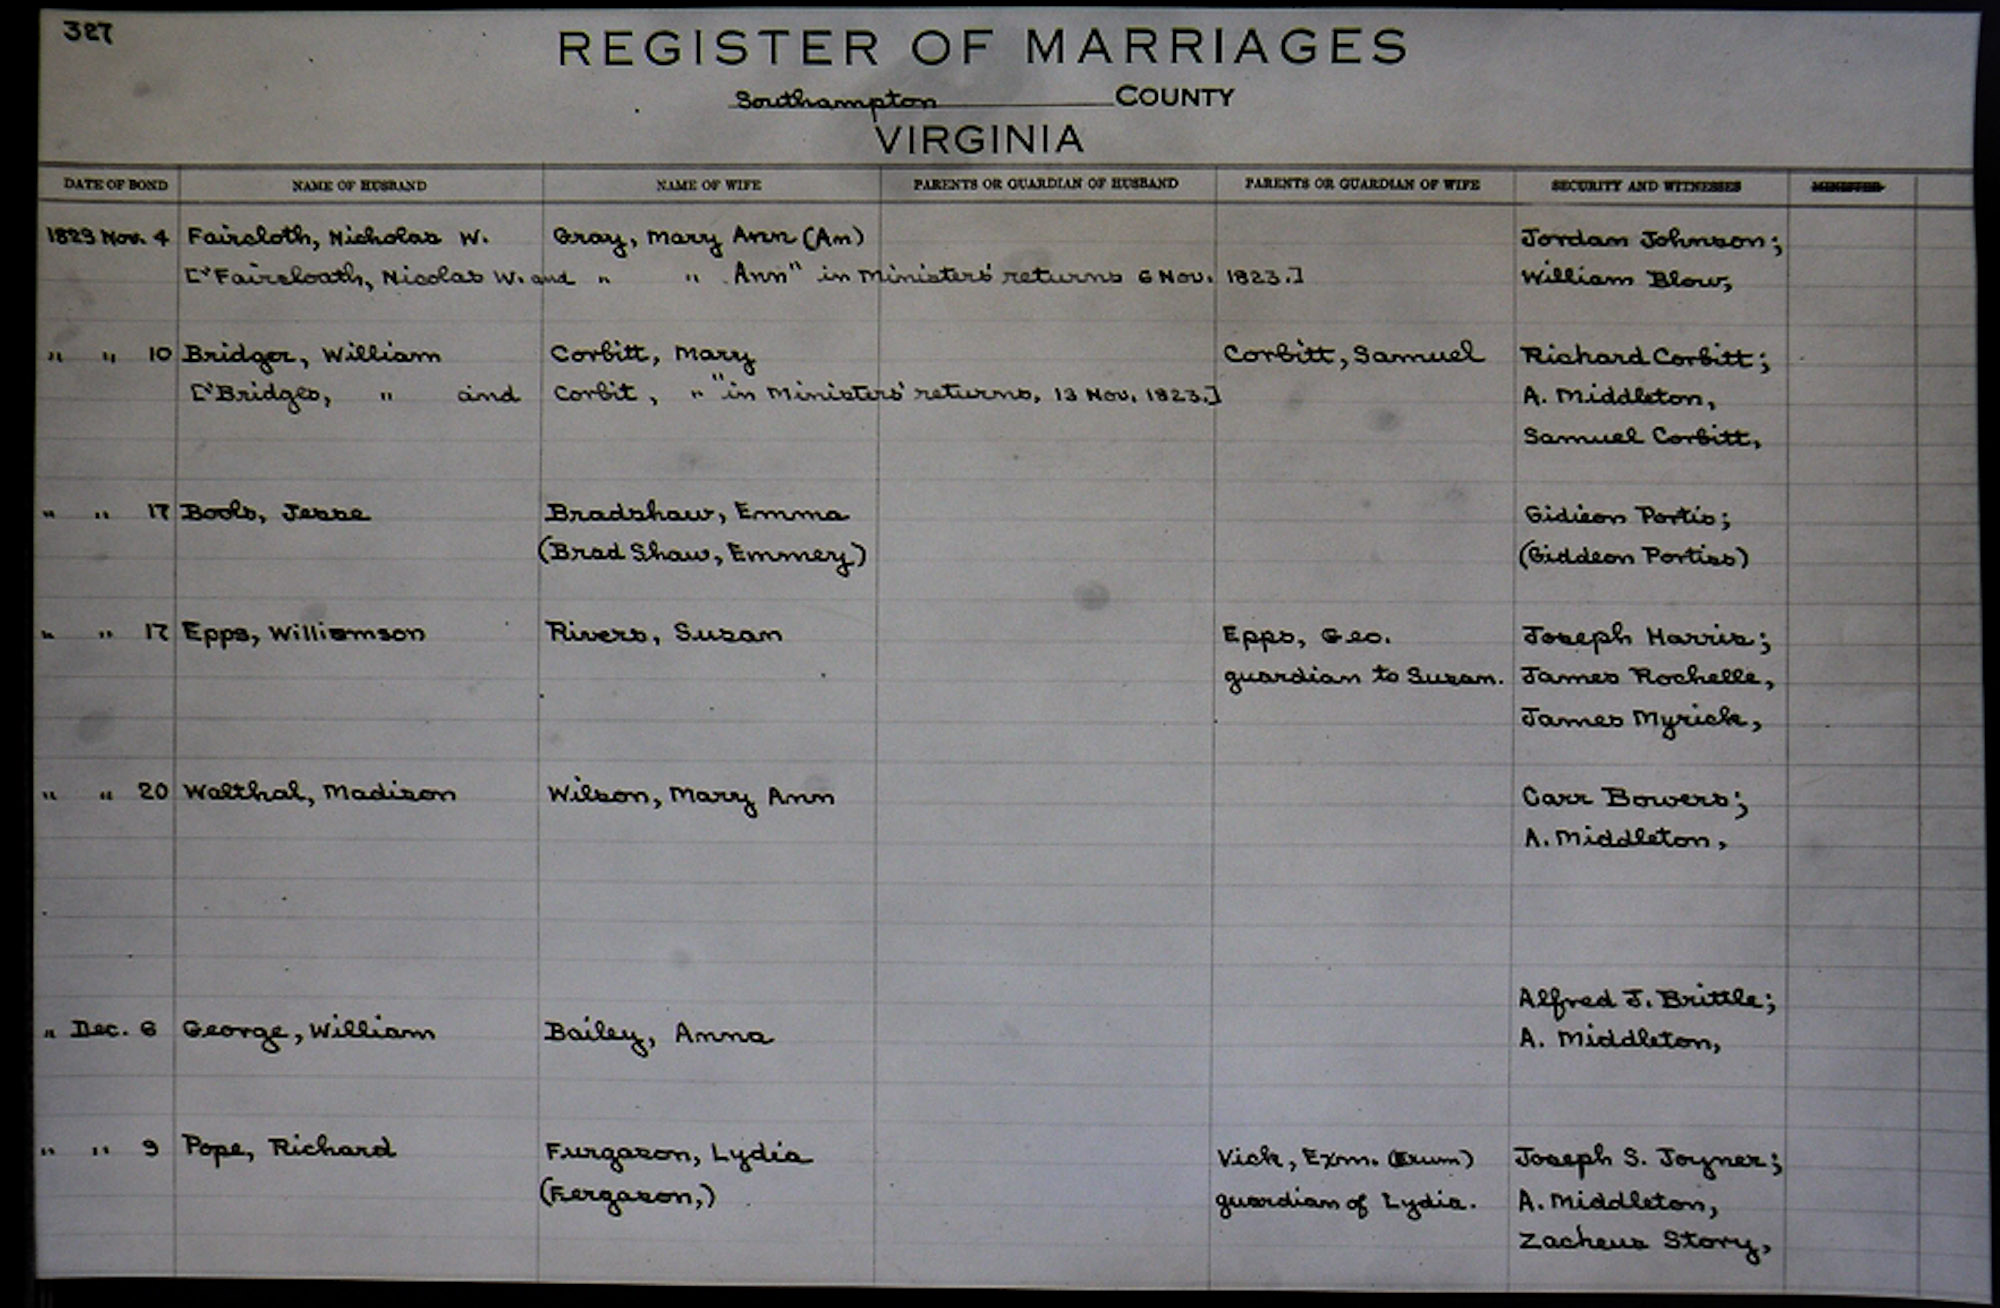 327
REGISTER OF MARRIAGES
Southampton COUNTY
VIRGINIA
DATE OF BOND NAME OF HUSBAND NAME OF WIFE PARENTS OR GUARDIAN OF HUSBAND PARENTS OR GUARDIAN OF WIFE SECURITY AND WITNESSES MINISTER
1823 Nov. 4 Faircloth, Nicholas W. Gray, Mary Ann (An) Jordan Johnson;
["Faircloath, Nicolas W. and " " Ann" in Ministers' returns 6 Nov. 1823.] William Blow,
" " 10 Bridger, William Corbitt, Mary Corbitt, Samuel Richard Corbitt;
["Bridges, " and Corbit, " "in Ministers' returns, 13 Nov. 1823.] A. Middleton,
Samuel Corbitt,
" " 17 Bools, Jesse Bradshaw, Emma Gidieon Portis;
(Brad Shaw, Emmey) (Giddeon Portiss)
" " 17 Epps, Williamson Rivers, Susan Epps, Geo. Joseph Harris;
guardian to Susan. James Rochelle,
James Myrick,
" " 20 Walthal, Madison Wilson, Mary Ann Carr Bowers;
A. Middleton,
Alfred J. Brittle;
" Dec. 6 George, William Bailey, Anna A. Middleton,
" " 9 Pope, Richard Furgason, Lydia Vick, Exm. (Exum) Joseph S. Joyner;
(Fergason,) guardian of Lydia. A. Middleton,
Zacheus Story,